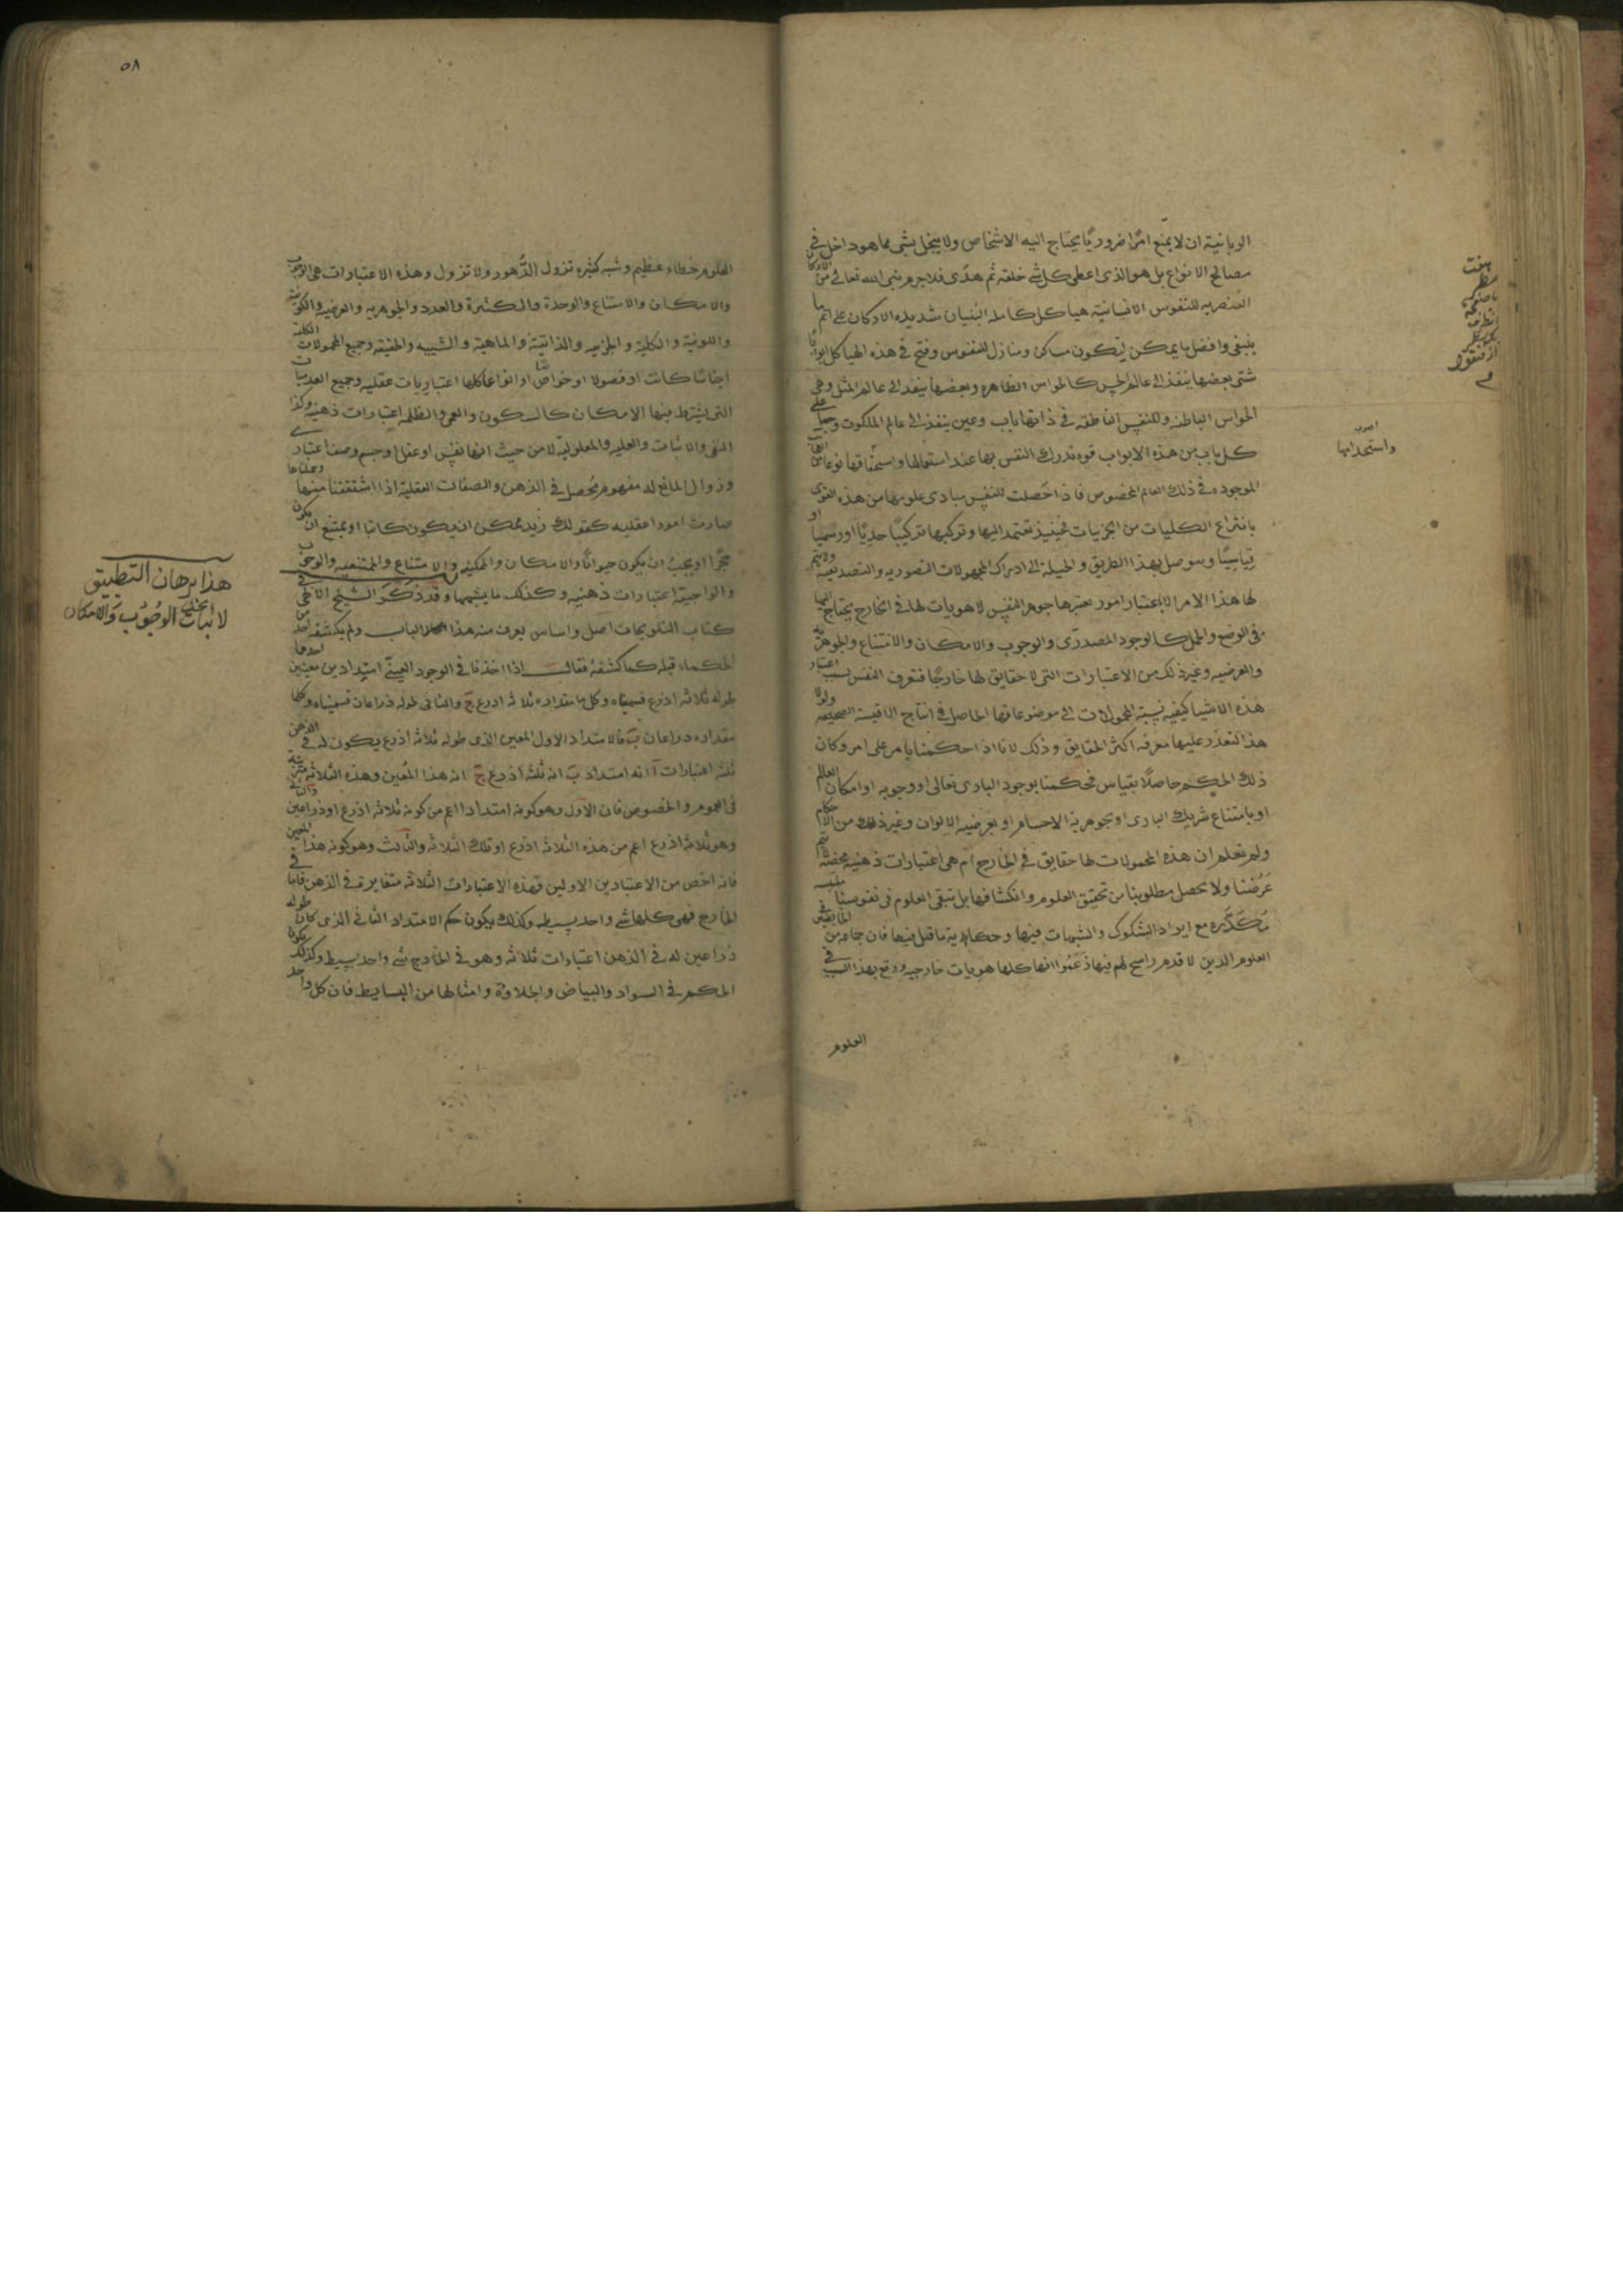 الربانية ان لا يمنع امرا ضروريا يحتاج اليه الاشخاص ولا يبخل بشى مما هو داخل فى
مصالح الانواع بل هو الذى اعطى كل شى خلقه ثم هدى فلا جرم بنى الله تعالى من الاركان
العنصريه للنفوس الانسانية هياكل كامله البنيان شديده الاركان على اتم ما
ينبغى وافضل ما يمكن لتكون مساكن ومنازل للنفوس وفتح فى هذه الهياكل ابوابا
شتى بعضها ينفذ الى عالم الحس كالحواس الظاهره وبعضها ينفذ الى عالم المثل وهى
الحواس الباطنه وللنفس الناطقه فى ذاتها باب وعين ينفذ الى عالم الملكوت وجعل على
كل باب من هذه الابواب قوه تدرك النفس بها عند استعمالها نوعا من
الموجوده فى ذلك العالم المخصوص فاذا حصلت للنفس مبادى علومها من هذه القوى
بانتزاع الكليات من الجزييات فحينيذ تعتمد اليها وتركبها تركيبا حديا او رسميا او
قياسيا وتتوصل بهذا الطريق والحيلة الى ادراك المجهولات التصوريه والتصديقيه ولا يتم
لها هذا الامر الا باعتبار امور تعتبرها جوهر النفس لا هويات لها فى الخارج يحتاج اليها
فى الوضع والحمل كالوجود المصدرى والوجوب والامكان والامتناع والجوهريه
والعرضيه وغير ذلك من الاعتبارات التى لا حقايق لها خارجا فتعرف النفس بسبب اعتبار
هذه الاشيا كيفيه نسبة المحمولات الى موضوعاتها الحاصل فى انتاج الاقيسة الصحيحه ولولا
هذا لتعذر عليها معرفه اكثر الحقايق وذلك لانا اذا حكمنا بامر على امر وكان
ذلك الحكم حاصلا بقياس فحكمنا بوجود البارى تعالى او وجوبه او امكان العالم
او بامتناع شريك البارى او بجوهرية الاجسام او بعرضيه الالوان وغير ذلك من الاحكام
ولم نعلم ان هذه المحمولات لها حقايق فى الخارج ام هى اعتبارات ذهنيه محضه لم يتم
غرضنا ولا يحصل مطلوبنا من تحقيق العلوم وانكشافها بل تبقى العلوم فى نفوسنا ملتبسه
متكدره مع ايراد الشكوك والشبهات فيها وحكاية ما قيل فيها فان جماعه من الخايضين فى
العلوم الذين لا قدم راسخ لهم فيها زعموا انها كلها هويات خارجيه ووقع بهذا السبب فى
العلوم
واستخدامها
٥٨
العلوم خطاء عظيم وشبه كثيره تزول الدهور ولا تزول وهذه الاعتبارات هى الوجوب
والامكان والامتناع والوحدة والكثرة والعدد والجوهريه والعرضيه والكونية
واللونية والكلية والجزييه والذاتية والماهية والشييه والحقيقه وجميع المحمولات الكلية
اجناسا كانت او فصولا او خواصا او انواعا كلها اعتباريات عقليه وجميع العدميات
التى يشترط فيها الامكان كالسكون والعمى والظلمه اعتبارات ذهنيه وكذا
النفى والاثبات والعليه والمعلولية لا من حيث انها نفس او عقل او جسم وصفا اعتبارى
وزوال المانع له مفهوم محصل فى الذهن والصفات العقلية اذا اشتققنا منها وحملناها
صارت امورا عقليه كقولك زيد ممكن ان يكون كاتبا او يمتنع ان يكون
حجرا او يجب ان يكون حيوانا والامكان والممكنيه والامتناع والممتنعيه والوجوب
والواجبية اعتبارات ذهنيه وكذلك ما يشبهها وقد ذكر الشيخ الالهى فى
كتاب التلويحات اصل واساس يعرف منه هذا الباب ولم يكشفه احد من
الحكماء قبله كما كشفه فقال اذا اخذنا فى الوجود العينى امتدادين معينين احدهما
طوله ثلاثه اذرع فسميناه وكل ما مقداره ثلاثه اذرع ج والثانى طوله ذراعان فسميناه وكلما
مقداره ذراعان ب فالامتداد الاول المعين الذى طوله ثلاثه اذرع يكون له فى الذهن
ثلثه اعتبارات آ انه امتداد ب انه ثلثه اذرع ج انه هذا المعين وهذه الثلاثه مترتبة
فى العموم والخصوص فان الاول وهو كونه امتدادا اعم من كونه ثلاثه اذرع او ذراعين والثانى
وهو ثلاثة اذرع اعم من هذه الثلاثه اذرع او تلك الثلاثه والثالث وهو كونه هذا المعين
فانه اخص من الاعتبارين الاولين فهذه الاعتبارات الثلاثه متغايرة فى الذهن فاما فى
الخارج فهى كلها شى واحد بسيط وكذلك يكون حكم الامتداد الثانى الذى كان طوله
ذراعين له فى الذهن اعتبارات ثلاثه وهو فى الخارج شى واحد بسيط وكذلك يكون
الحكم فى السواد والبياض والحلاوة وامثالها من البسايط فان كل واحد
هذا برهان التطبيق
لاثبات الوجوب والامكان